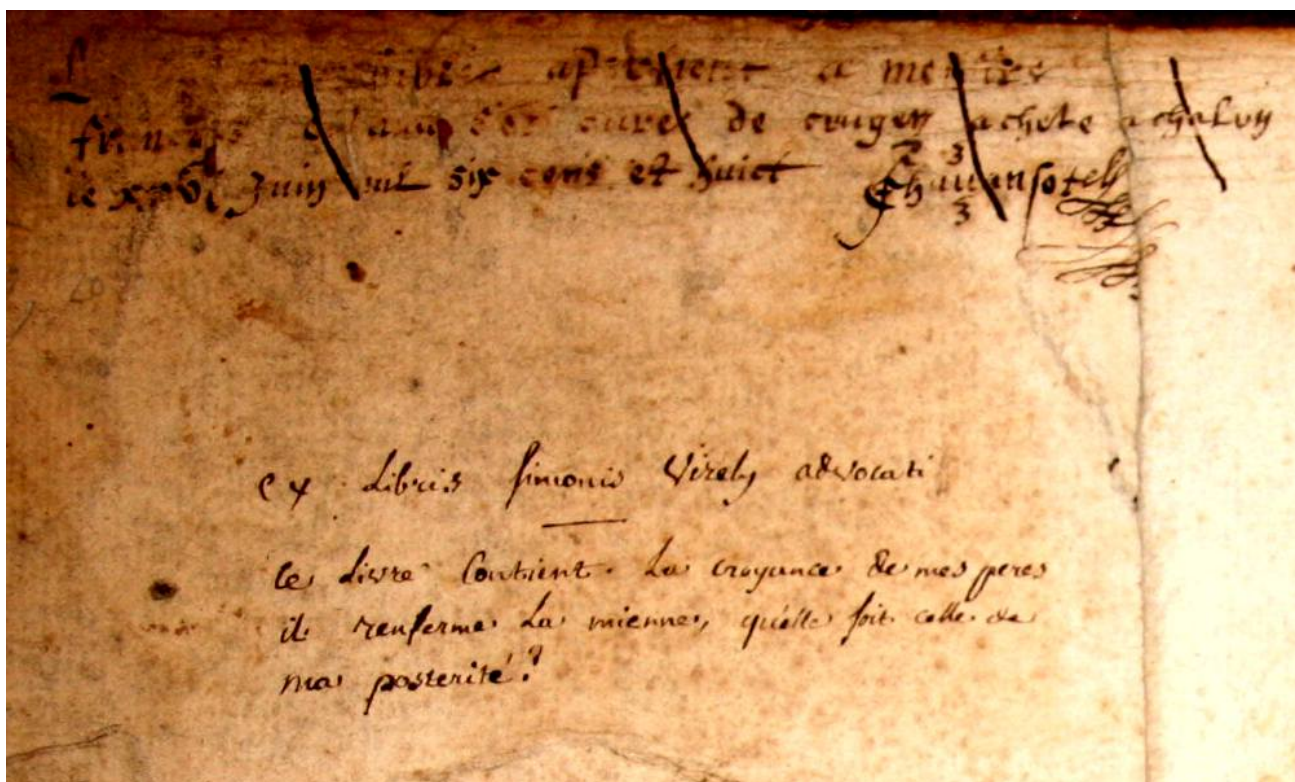 apartient a messire
françois curé de achete a chalon
le xxvi juin mil six cens et huict
ex Libris simonis Virely advocati
ce Livre Contient La croyance de mes peres
il renferme La mienne, qu'elle soit celle de
ma posterité!